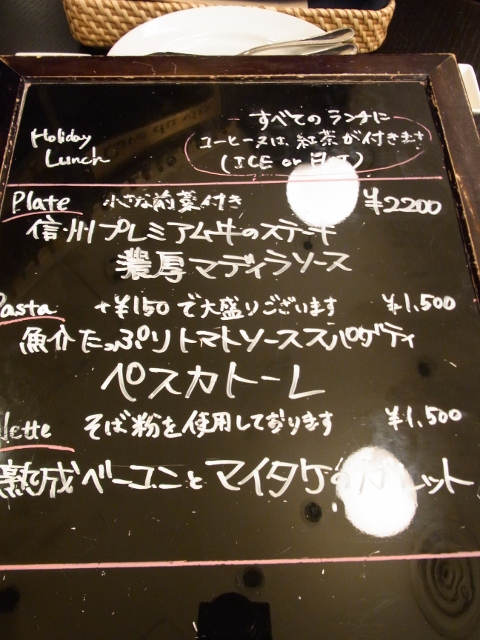 Holiday
Lunch
すべてのランチに
コーヒー又は紅茶が付きます
(ICE or HOT)
Plate 小さな前菜付き ¥2200
信州プレミアム牛のステーキ
濃厚マディラソース
Pasta +¥150で大盛りございます ¥1,500
魚介たっぷりトマトソーススパゲティ
ペスカトーレ
lette そば粉を使用しております ¥1,500
熟成ベーコンとマイタケのガレット